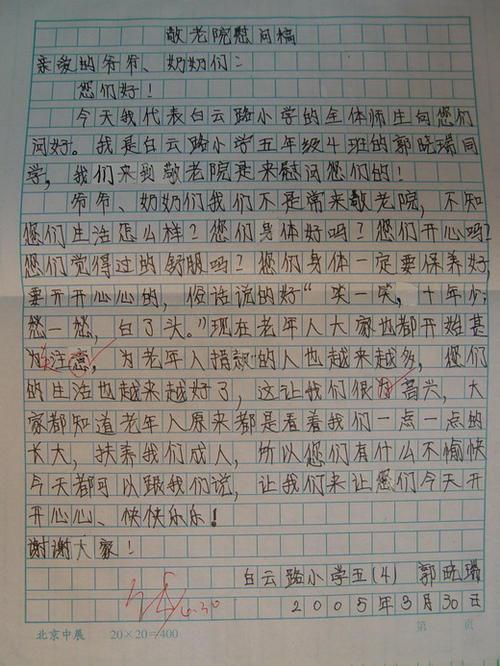 敬老院慰问稿
亲爱的爷爷、奶奶们：
您们好！
今天我代表白云路小学的全体师生向您们
问好。我是白云路小学五年级4班的郭晓瑞同
学，我们来到敬老院是来慰问您们的！
爷爷、奶奶们我们不是常来敬老院，不知
您们生活怎么样？您们身体好吗？您们开心吗？
您们觉得过的舒服吗？您们身体一定要保养好，
要开开心心的，俗话说的好“笑一笑，十年少；
愁一愁，白了头。”现在老年人大家也都开始甚
为注意，为老年人捐款的人也越来越多，您们
的生活也越来越好了，这让我们很为高兴，大
家都知道老年人原来都是看着我们一点一点的
长大，扶养我们成人，所以您们有什么不愉快
今天都可以跟我们说，让我们来让您们今天开
开心心、快快乐乐！
谢谢大家！
白云路小学五（4） 郭晓瑞
2005年3月30日
4.30
北京中展 20×20=400 第 页